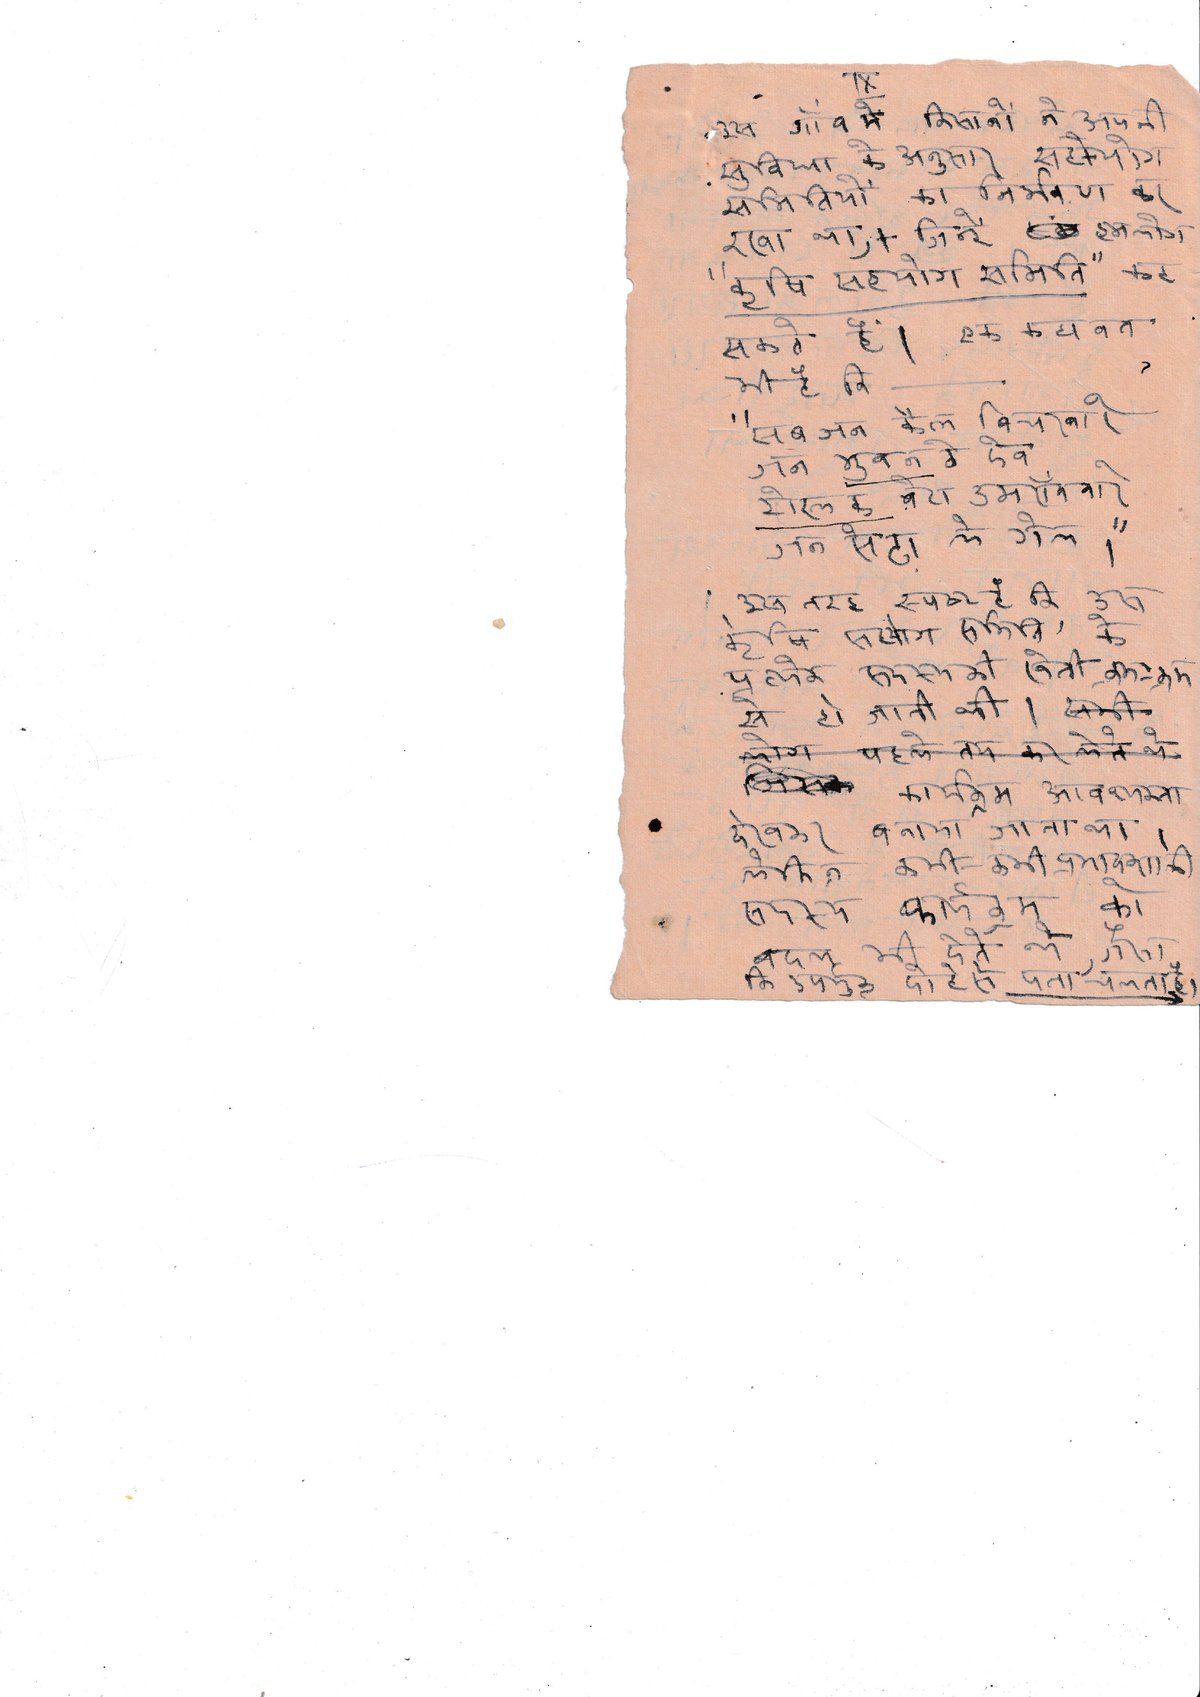 IX
इस गाँव में किसानों ने अपनी
सुविधा के अनुसार सहयोग
समितियों का निर्माण कर
रखा था, जिन्हें हमलोग
"कृषि सहयोग समिति" कह
सकते हैं। एक कहावत
भी है कि ———
"सब जन कैल विचरवारे
जन भुवन ले देव
शीतल क बेटा उमराँववारे
जन सेहा ले गेल।"
इस तरह स्पष्ट है कि उस
'कृषि सहयोग समिति' के
प्रत्येक सदस्य की खेती क्रम-क्रम
से हो जाती थी। सभी
लोग पहले तय कर लेते थे
कार्यक्रम आवश्यकता
देखकर बनाया जाता था।
लेकिन कभी-कभी प्रभावशाली
सदस्य कार्यक्रम को
बदल भी देते थे, जैसा
कि उपर्युक्त दोहे से पता चलता है।